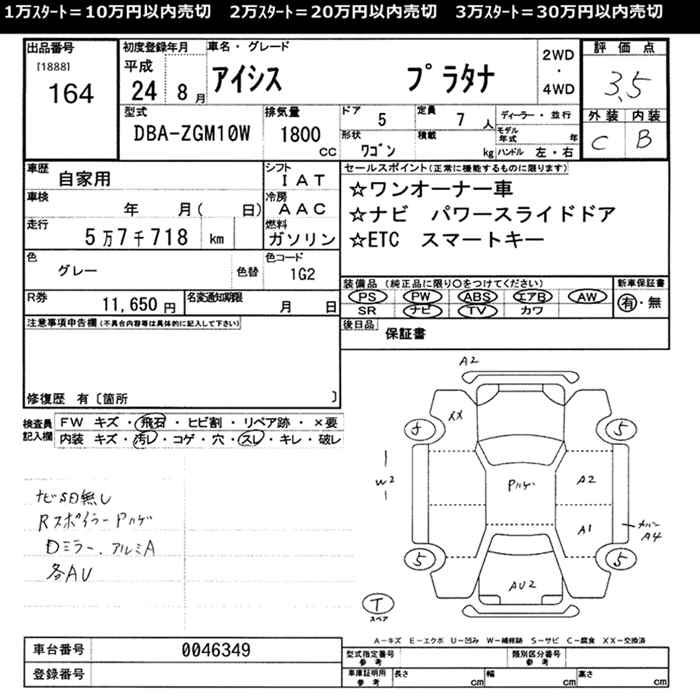 1万ｽﾀｰﾄ＝10万円以内売切　2万ｽﾀｰﾄ＝20万円以内売切　3万ｽﾀｰﾄ＝30万円以内売切
出品番号
[1888]
164
初度登録年月
平成
24 8月
車名・グレード
アイシス プラタナ
2WD
・
4WD
評価点
3.5
外装 内装
C B
型式
DBA-ZGM10W
排気量
1800
cc
ドア
5
定員
7 人
形状
ワゴン
積載
kg
ディーラー・並行
モデル年式 年
ハンドル 左・右
車歴
自家用
シフト
IAT
車検
年 月( 日)
冷房
AAC
走行
5万7千718 km
燃料
ガソリン
色
グレー
色替
色コード
1G2
R券
11,650 円
名変通知期限
月 日
セールスポイント(正常に機能するものに限ります)
☆ワンオーナー車
☆ナビ　パワースライドドア
☆ETC　スマートキー
装備品(純正品に限り○をつけてください)
PS PW ABS エアB AW
SR ナビ TV カワ
新車保証書
有・無
後日品
保証書
注意事項申告欄(不具合内容等は具体的に記入して下さい)
修復歴 有〔箇所 〕
検査員記入欄
FW キズ・飛石・ヒビ割・リペア跡・×要
内装 キズ・汚レ・コゲ・穴・スレ・キレ・破レ
ナビSD無し
Rスポイラー Pハゲ
Dミラー、アルミA
各AU
A2
XX
5
5
W2
Pハゲ
A2
A1
A4
5
5
AU2
T
スペア
A－キズ E－エクボ U－凹み W－補修跡 S－サビ C－腐食 XX－交換済
車台番号
0046349
登録番号
型式指定番号
参考
類別区分番号
参考
車庫証明用
参考
長さ cm
幅 cm
高さ cm